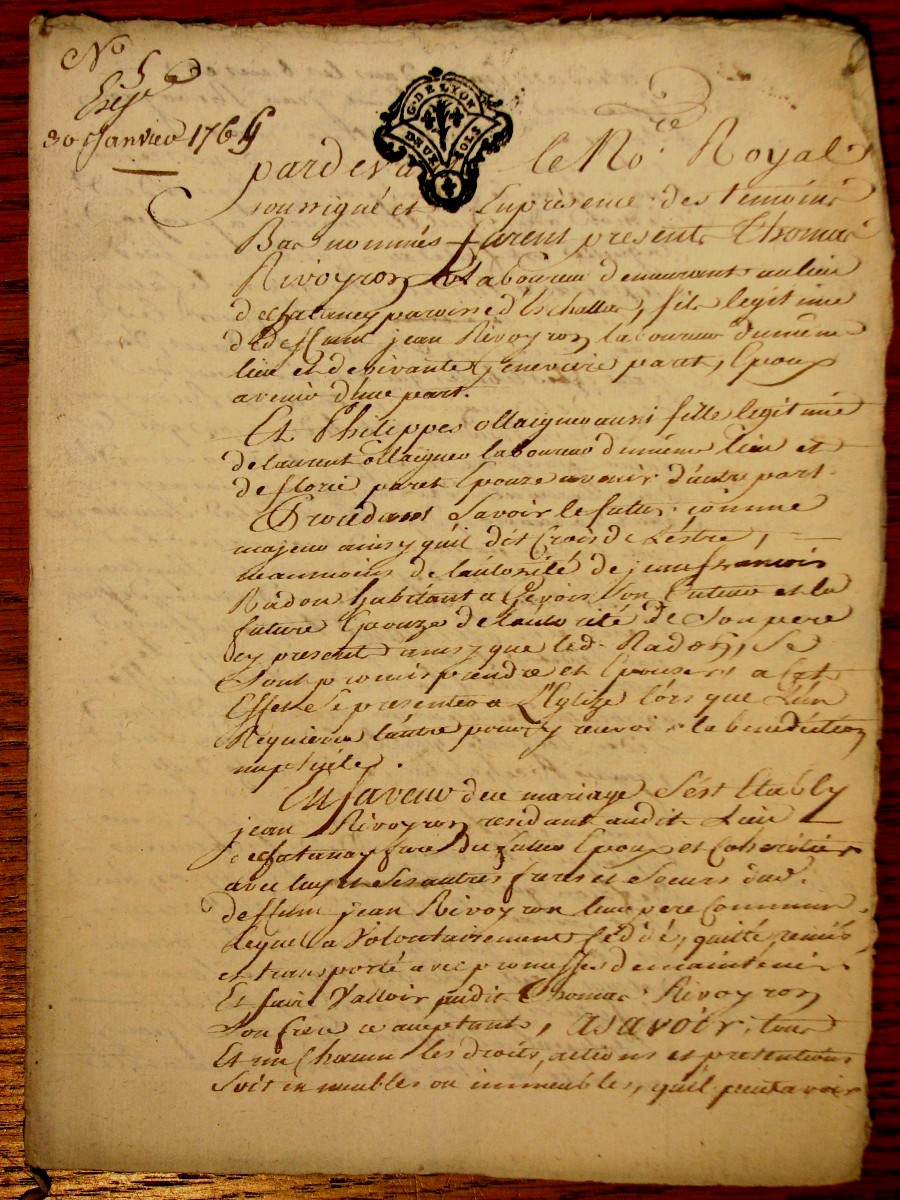 No 5
30 Janvier 1764
G. DE LYON
DEUX SOLS
pardeva le No.re Royal
soussigné et En présence des temoins
Bas nommés furent présents Thomas
Rivoyron Laboureur demeurant au lieu
paroisse d'Eschallas, fils legitime
de deffunt jean Rivoyron laboureur du même
lieu et de vivante paret, Epoux
avenir d'une part.
Et Philippes ollaignier aussi fille legitime
de laurent ollaignier laboureur du même lieu et
de florie paret Epouze avenir d'autre part.
Procédant Savoir le futur comme
majeur ainsy qu'il dit Crois de L'éstre,
neanmoins de l'autorité de jean françois
Radou habitant a Givors Son Curateur et la
future Epouze de l'autorité de Son pere
cy present ainsy que led. Radou, Se
Sont promis prendre et Epouser et a Cet
Effet Se presenter a L'Eglize lors que L'un
Requierra l'autre pour y recevoir la benediction
nuptialle.
En faveur du mariage S'est Etably
jean Rivoyron audit Lieu
frere du futur Epoux et Coheritier
avec luy et Ses autres freres et Soeurs dud.
deffunt jean Rivoyron leur pere Commun
Lequel a Volontairement Cédé, quitté, remis
et transporté avec promesses de maintenir
Et faire Valloir audit Thomas Rivoyron
Son frere acceptant, asavoir, tous
Et un Chacun les droits, actions et pretentions
Soit en meubles ou immeubles, qu'il peut avoir